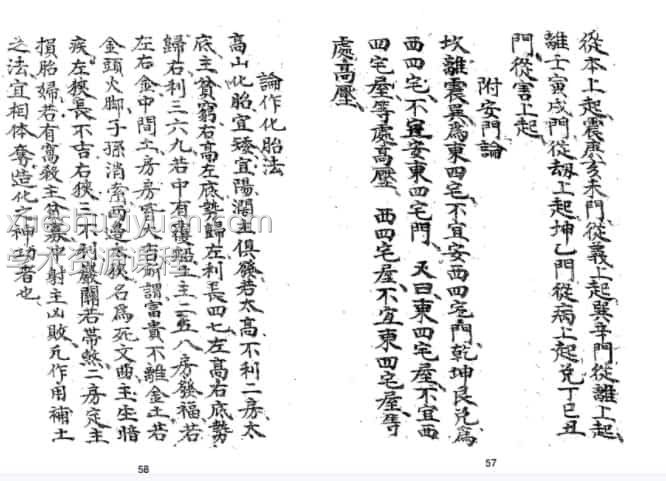 從本上起震庚亥未門從義上起巽辛門從離上起
離壬寅戌門從刼上起坤乙門從病上起兌丁巳丑
門從害上起
附安門論
坎離震巽為東四宅不宜安西四宅門乾坤艮兌為
西四宅不宜安東四宅門又曰東四宅屋不宜西
四宅屋等處高壓西四宅屋不宜東四宅屋等
處高壓
57
論作化胎法
高山化胎宜臻宜陽濶主俱發若太高不利二房太
底主貧窮右高左底勢歸左利長四七左高右底勢
歸右利三六九若中有覆船土主二五八房發福若
左右金中間土房房
謂富貴不離金土若
金頭火脚子孫消索兩邉太狹名為死文曲主生暗
疾左狹長不吉右狹三不利巖關若帶煞二房定主
損胎婦若有窩殺主貧寡中射主凶敗凢作用補土
之法宜相体奪造化之神功者也
58
xueshuziyuan.com
学术资源课程